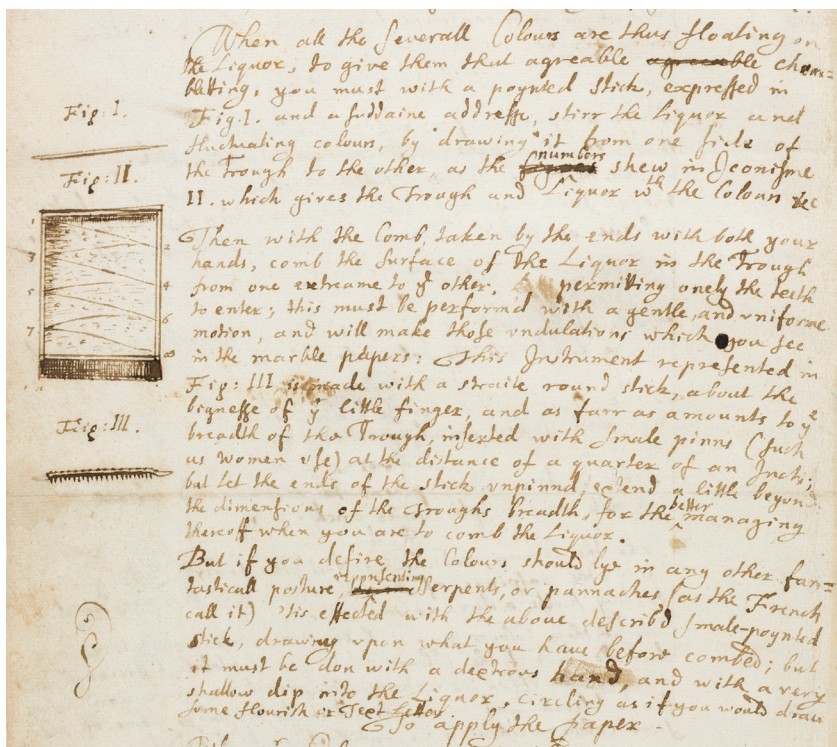 When all the severall Colours are thus floating on
the Liquor, to give them that agreable agreeable cham=
bletting, you must with a poynted stick, expressed in
Fig: I.
Fig. I. and a suddaine addresse, stirr the Liquor and
fluctuating colours, by drawing it from one side of
the Trough to the other, as the numbers shew in Iconisme
Fig: II.
II. which gives the Trough and Liquor wth the Colours &c
1
2
3
4
5
6
7
8
Then with the Comb, taken by the ends with both your
hands, comb the surface of the Liquor in the Trough
from one extreame to ye other, permitting onely the teeth
to enter; this must be perform'd with a gentle, and uniforme
motion, and will make those undulations which you see
in the marble papers: This Instrument represented in
Fig: III is made with a straite round stick, about the
bignesse of ye little finger, and as farr as amounts to ye
Fig: III.
breadth of the Trough, inserted with smale pinns (such
as women use) at the distance of a quarter of an Inch;
but let the ends of the stick unpinnd, extend a little beyond
the dimensions of the Troughs breadth, for the better managing
thereoff when you are to comb the Liquor.
But if you desire the Colours should lye in any other fan=
tasticall posture, representing Serpents, or pannaches (as the French
call it) 'tis effected with the above describd smale-poynted
stick, drawing upon what you have before combed; but
it must be don with a dextrous hand, and with a very
shallow dip into the Liquor, circling as if you would draw
some flourish or Text letter.
To apply the Paper.